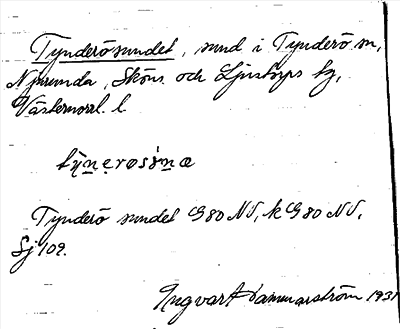 Tynderösundet, sund i Tynderö sn,
Njurunda, Sköns och Ljustorps tg,
Västernorrl. l.
Tynderö sundet G80 NV, k G80 NV,
Sj 109.
Ingvart Hammarström 1931